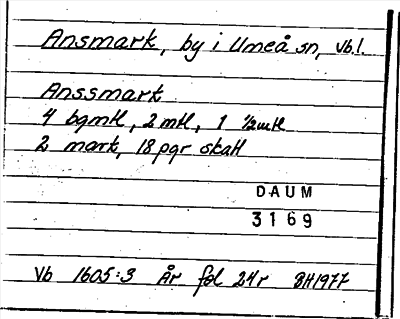 Ansmark, by i Umeå sn, Vb.l.
Anssmark
4 bgmtl, 2 mtl, 1 ½mtl
2 mark, 18 pgr skatt
DAUM
3169
Vb 1605:3 År fol 24r BH1977